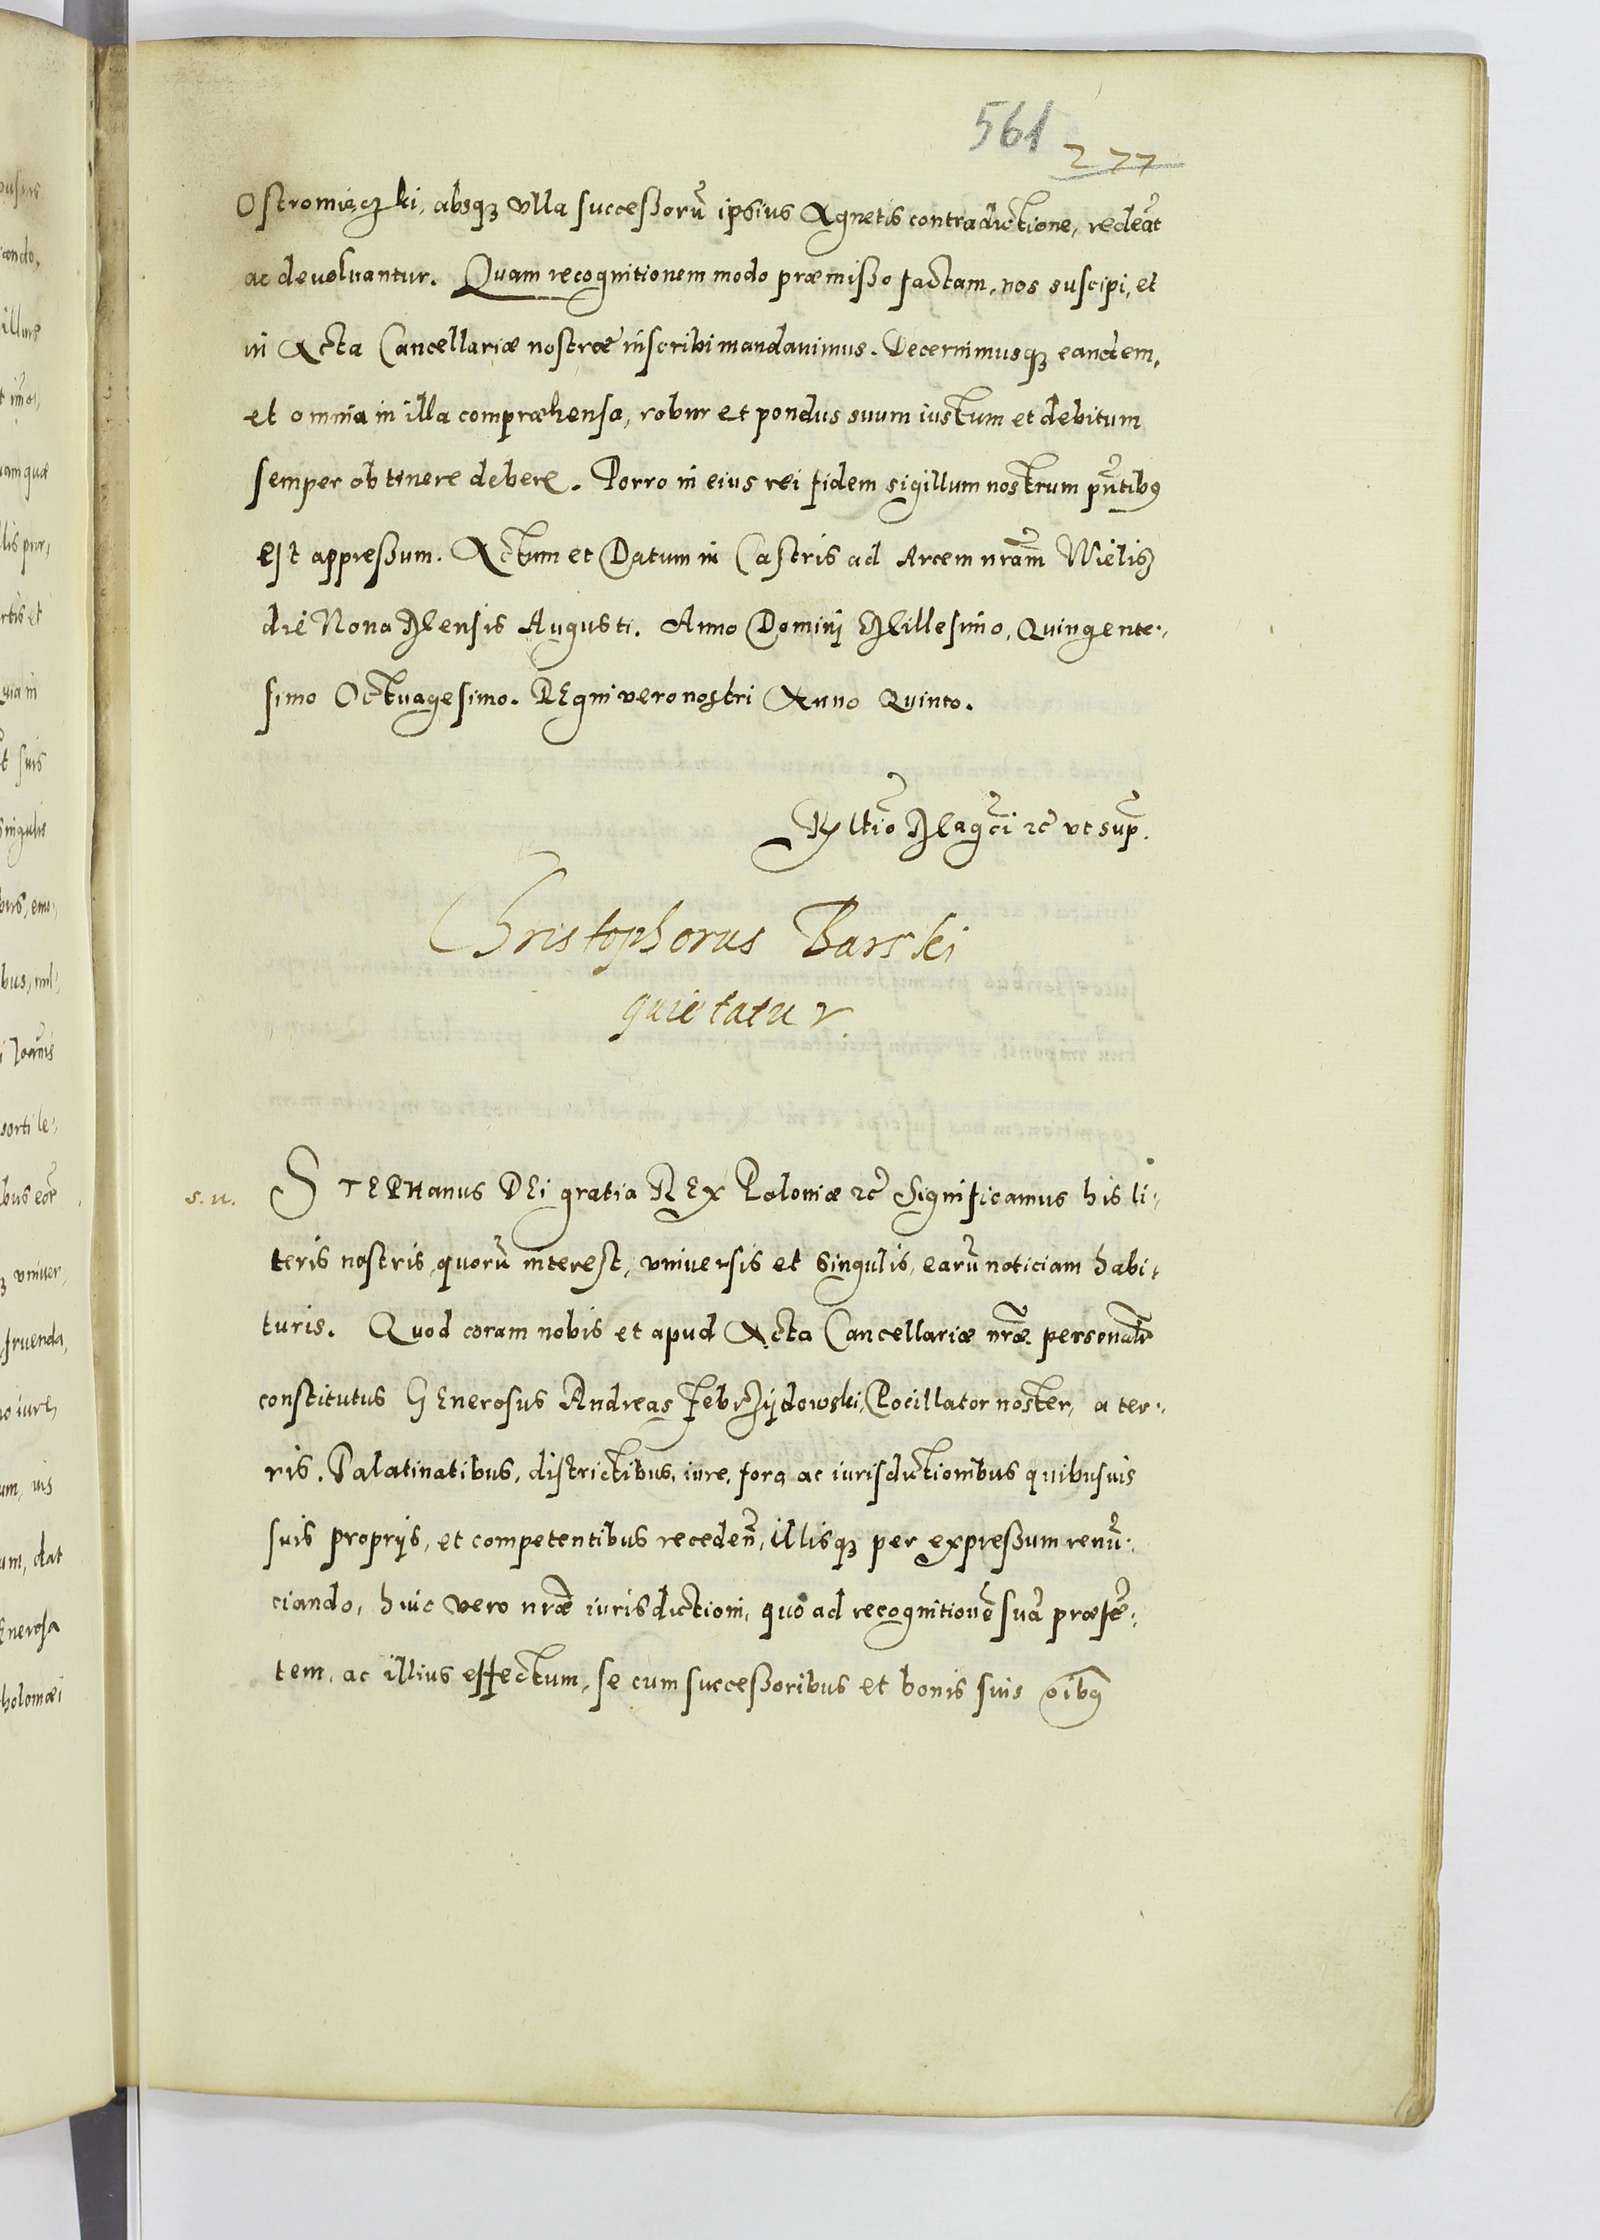 561
277
Ostromięczki, absqꝫ vlla successorū ipsius Agnetis contradictione, redeāt
ac devoluantur. Quam recognitionem modo præmisso factam, nos suscipi, et
in Acta Cancellariæ nostræ inscribi mandauimus. Decernimusqꝫ eandem,
et omnia in illa compræhensa, robur et pondus suum iustum et debitum
semper obtinere debere. Porro in eius rei fidem sigillum nostrum pn̄tibꝰ
est appressum. Actum et Datum in Castris ad Arcem nr̄am Wielisz
die Nona Mensis Augusti. Anno Domini Millesimo, Quingente-
simo Octuagesimo. REgni vero nostri Anno Quinto.
R̄ltio Magcī ꝛc̄ vt sup̄.
Christophorus Barski
quietatur.
s. n.
STEPHanus DEi gratia REx Poloniæ ꝛc̄ Significamus his li-
teris nostris, quorū interest, vniuersis et singulis, earū noticiam habi-
turis. Quod coram nobis et apud Acta Cancellariæ nr̄æ personalr̄
constitutus GEnerosus Andreas Jebrzÿdowski, Pocillator noster, a ter-
ris, Palatinatibus, districtibus, iure, foro ac iurisdictionibus quibusuis
suis proprijs, et competentibus receden̄, illisqꝫ per expressum renū-
ciando, huic vero nr̄æ iurisdictioni, quo ad recognitionē suā præsē-
tem, ac illius effectum, se cum successoribus et bonis suis oībꝰ